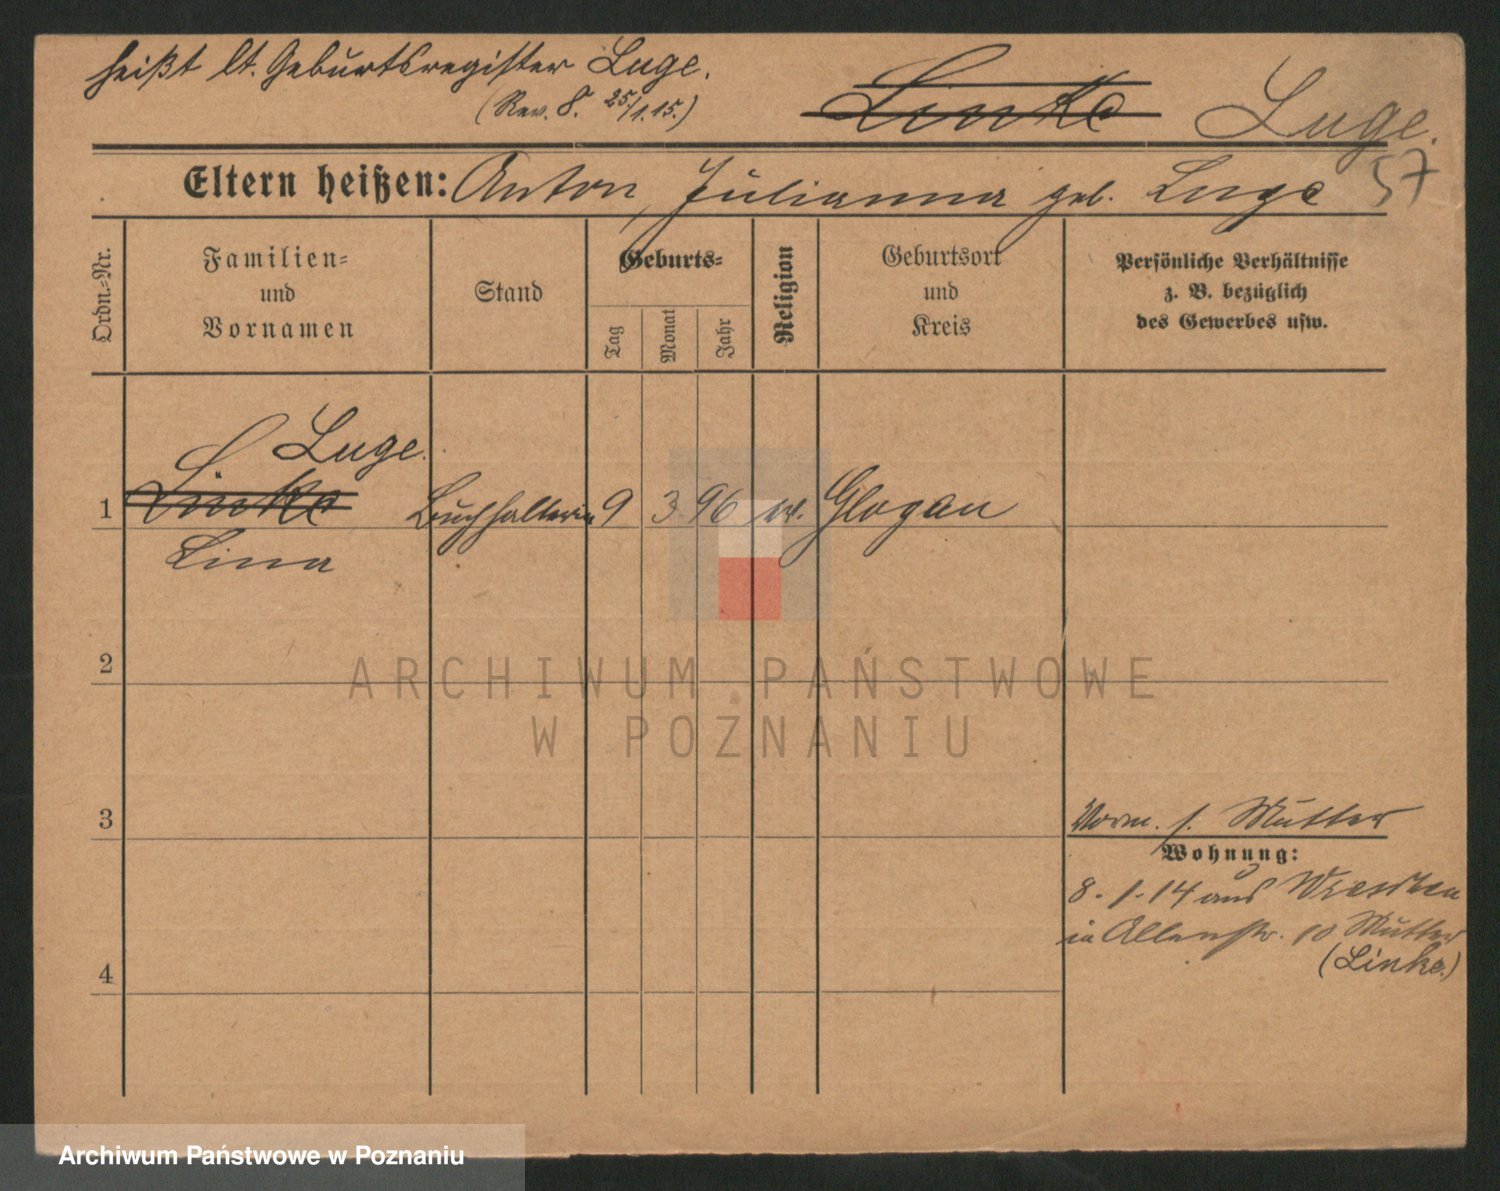 heißt lt. Geburtsregister Luge.
(Rev. 8. 25/1.15.)
Linke Luge.
57
Eltern heißen: Anton, Julianna geb. Luge
Ordn.-Nr.
Familien-
und
Vornamen
Stand
Geburts-
Tag
Monat
Jahr
Religion
Geburtsort
und
Kreis
Persönliche Verhältnisse
z. B. bezüglich
des Gewerbes usw.
Luge.
1 Linke Buchhalterin 9 3. 96 Glogau
Lina
2
ARCHIWUM PAŃSTWOWE
W POZNANIU
3
Vorm. s. Mutter
Wohnung:
8.1.14 aus Dresden
in Allerstr. 10 Mutter
(Linke.)
4
Archiwum Państwowe w Poznaniu